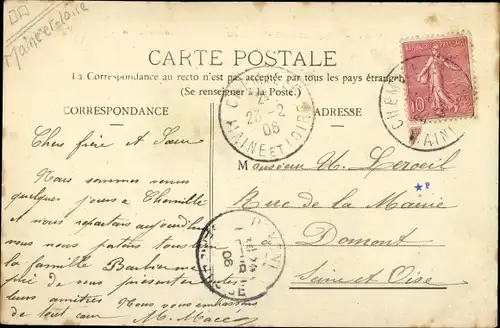 Maine et Loire
CARTE POSTALE
La Correspondance au recto n'est pas acceptée par tous les pays étrangers
(Se renseigner à la Poste.)
CORRESPONDANCE
ADRESSE
23-2
06
MAINE ET LOIRE
CHEM
MAINE
10
Chers frère et Sœur
Nous sommes venus
quelques jours à Chemillé
et nous repartons aujourd'hui
nous vous
la famille
de vous présenter
leurs amitiés Nous vous embrassons
de tout cœur M. Macé
Monsieur
Rue de la Mairie
Domont
Seine et Oise
06
★P